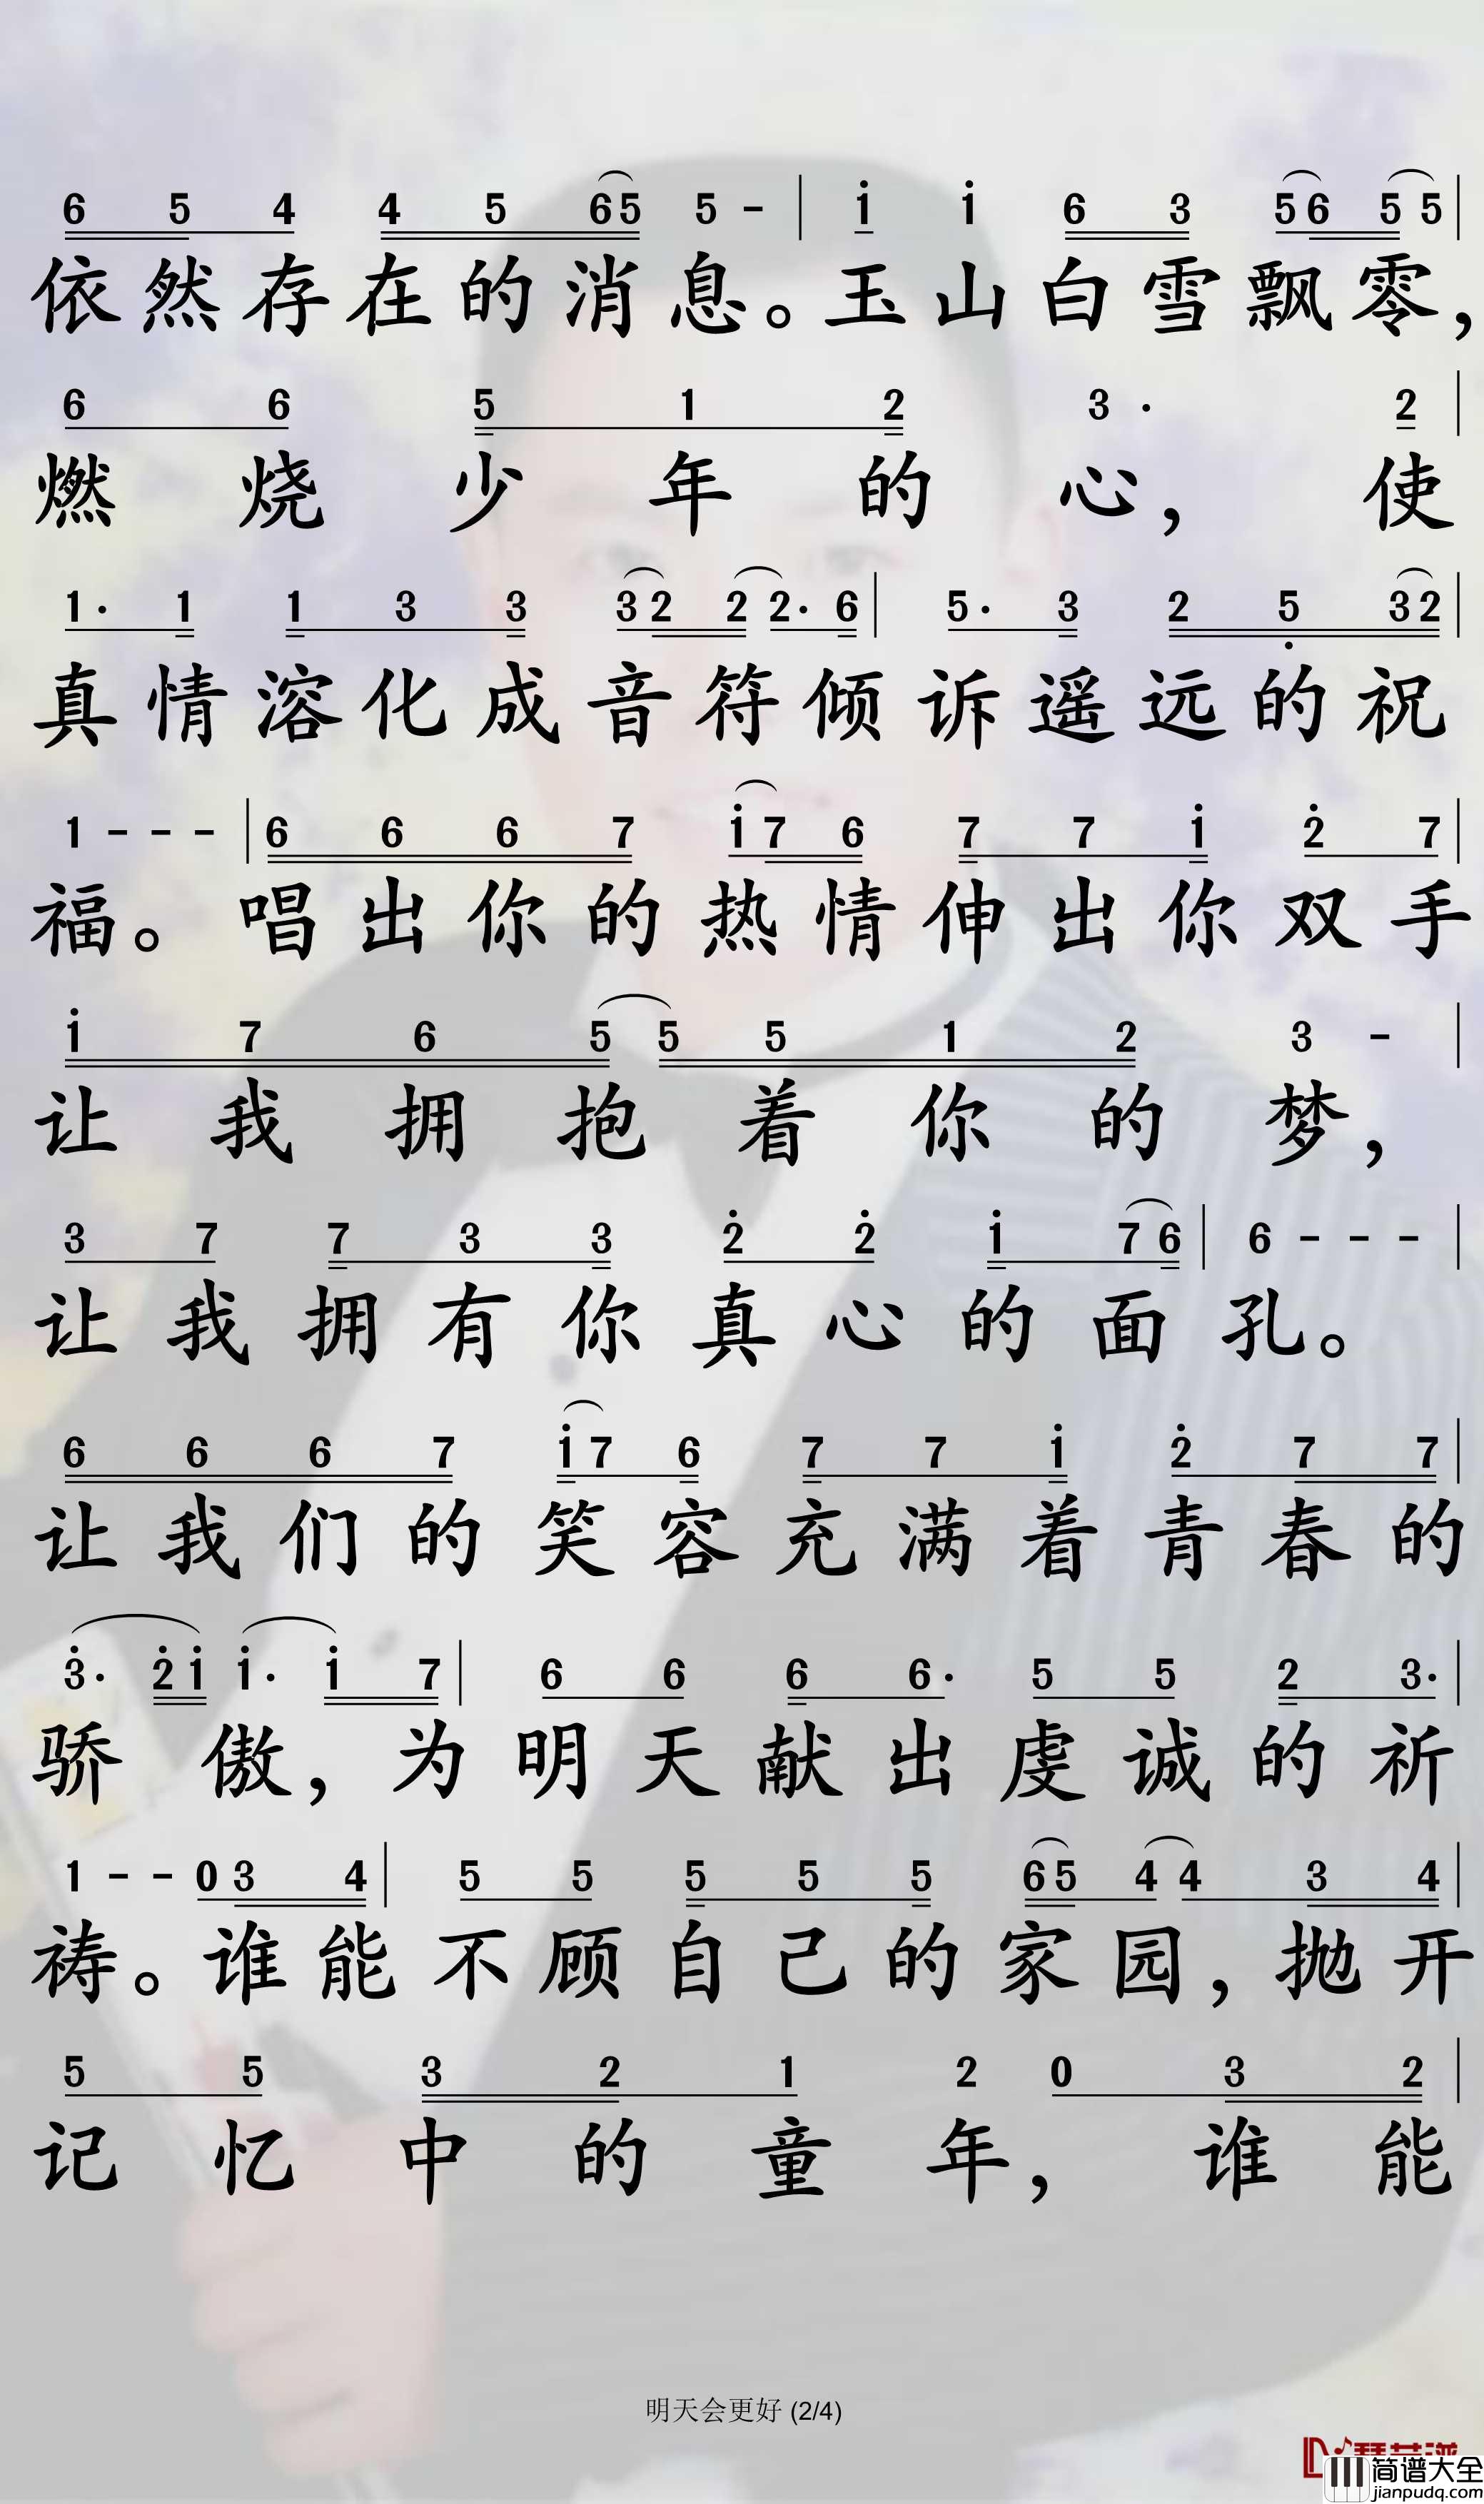 6 5 4 4 5 6 5 5 - | i i 6 3 5 6 5 5 |
依然存在的消息。玉山白雪飘零，
6 6 5 1 2 3 · 2 |
燃烧少年的心，使
1 · 1 1 3 3 3 2 2 2 · 6 | 5 · 3 2 5 3 2 |
真情溶化成音符倾诉遥远的祝
1 - - - | 6 6 6 7 i 7 6 7 7 i 2 7 |
福。唱出你的热情伸出你双手
i 7 6 5 5 5 1 2 3 - |
让我拥抱着你的梦，
3 7 7 3 3 2 2 i 7 6 | 6 - - - |
让我拥有你真心的面孔。
6 6 6 7 i 7 6 7 7 i 2 7 7 |
让我们的笑容充满着青春的
3 · 2 i i · i 7 | 6 6 6 6 · 5 5 2 3 · |
骄傲，为明天献出虔诚的祈
1 - - 0 3 4 | 5 5 5 5 5 6 5 4 4 3 4 |
祷。谁能不顾自己的家园，抛开
5 5 3 2 1 2 0 3 2 |
记忆中的童年，谁能
明天会更好 (2/4)
简谱大全
jianpudq.com